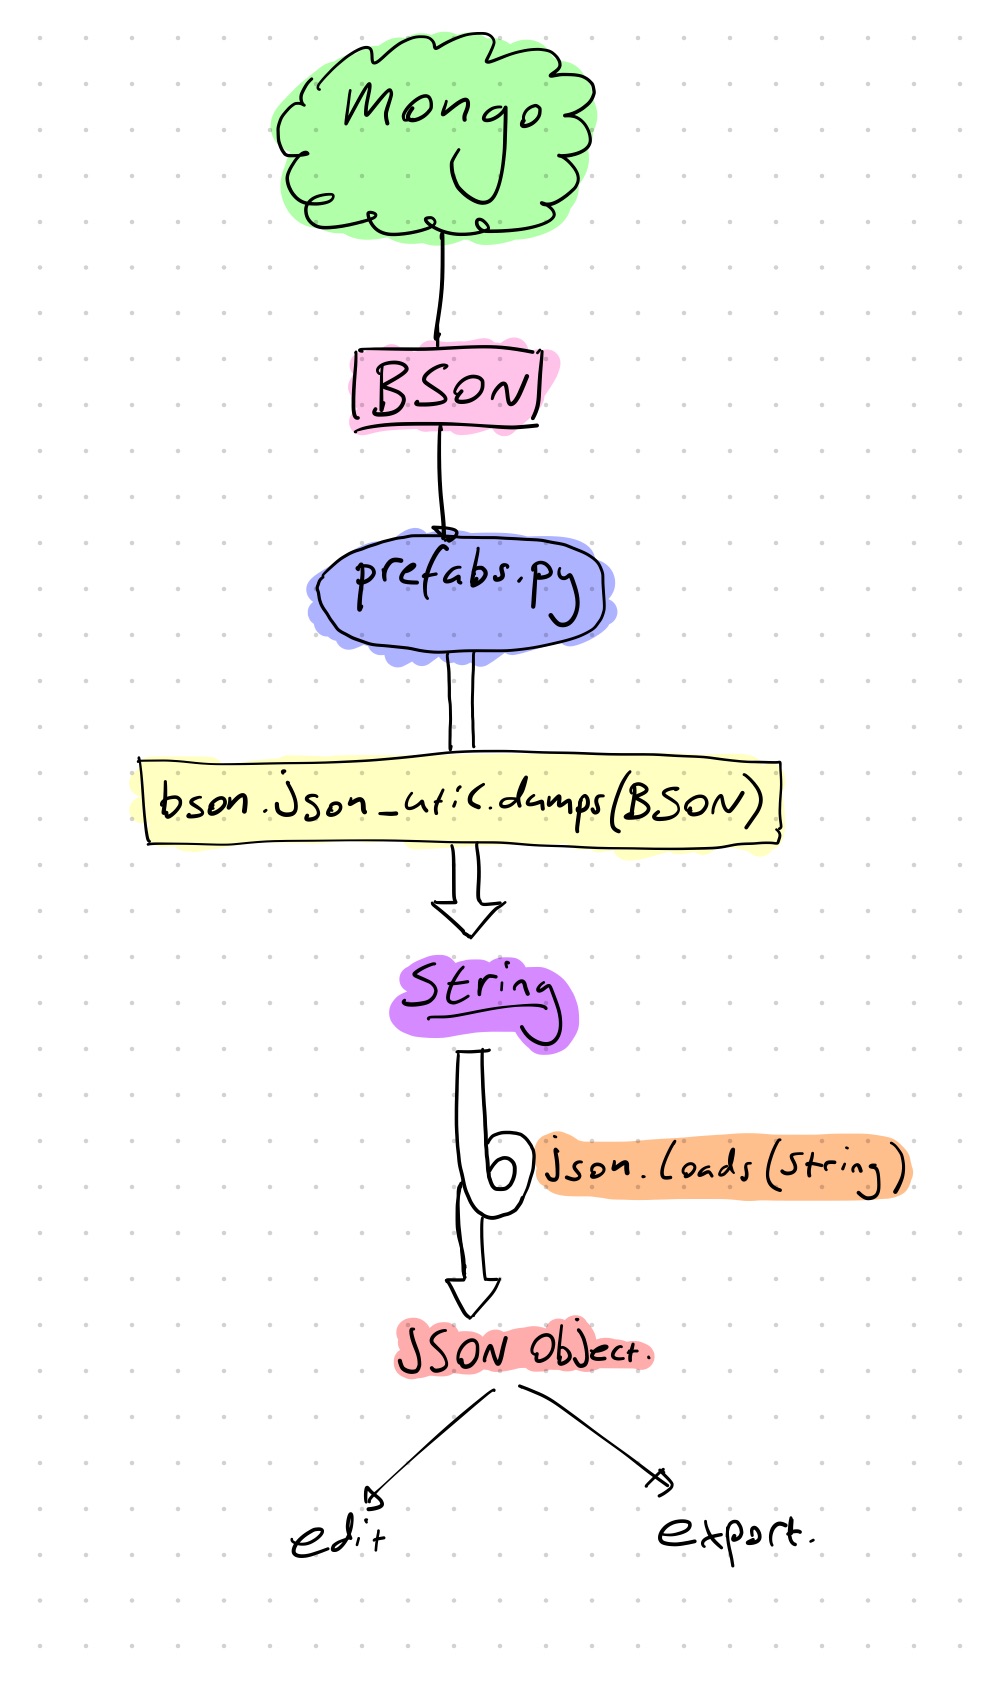 Mongo
BSON
prefabs.py
bson.json_util.dumps(BSON)
String
json.loads(string)
JSON Object.
edit
export.